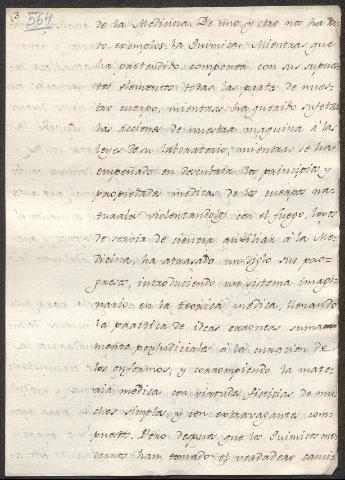 564
de la Medicina. De uno y otro nos ha da-
do exemplos la Quimica. Mientras que
ha pretendido componer con sus supues-
tos elementos todas las partes de nues-
tro cuerpo, mientras ha querido sujetar
las acciones de nuestra maquina á las
leyes de su laboratorio, mientras se ha
empeñado en los principios y
propiedades medicas de los cuerpos na-
turales violentandolos con el fuego, lejos
de servir de ciencia auxiliar á la Me-
dicina, ha atrasado un siglo sus pro-
gresos, introduciendo un sistema imagi-
nario en la teorica medica, llenando
la practica de ideas erroneas sumam-
mente perjudiciales á la curacion de
los enfermos, y corrompiendo la mate-
ria medica con virtudes ficticias de mu-
chos simples, y con extravagantes com-
puestos. Pero despues que los Quimicos mo-
dernos han tomado el verdadero cami-